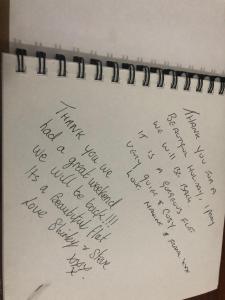 Thank you we
had a great weekend
We will be back!!!
Its a beautiful flat
Love Shirley & Steve
xoxo
THANK YOU FOR A
BEAUTIFUL HOLIDAY,
WE WILL BE BACK
IT IS A GORGEOUS FLAT
VERY QUIET & COSY
LOVE